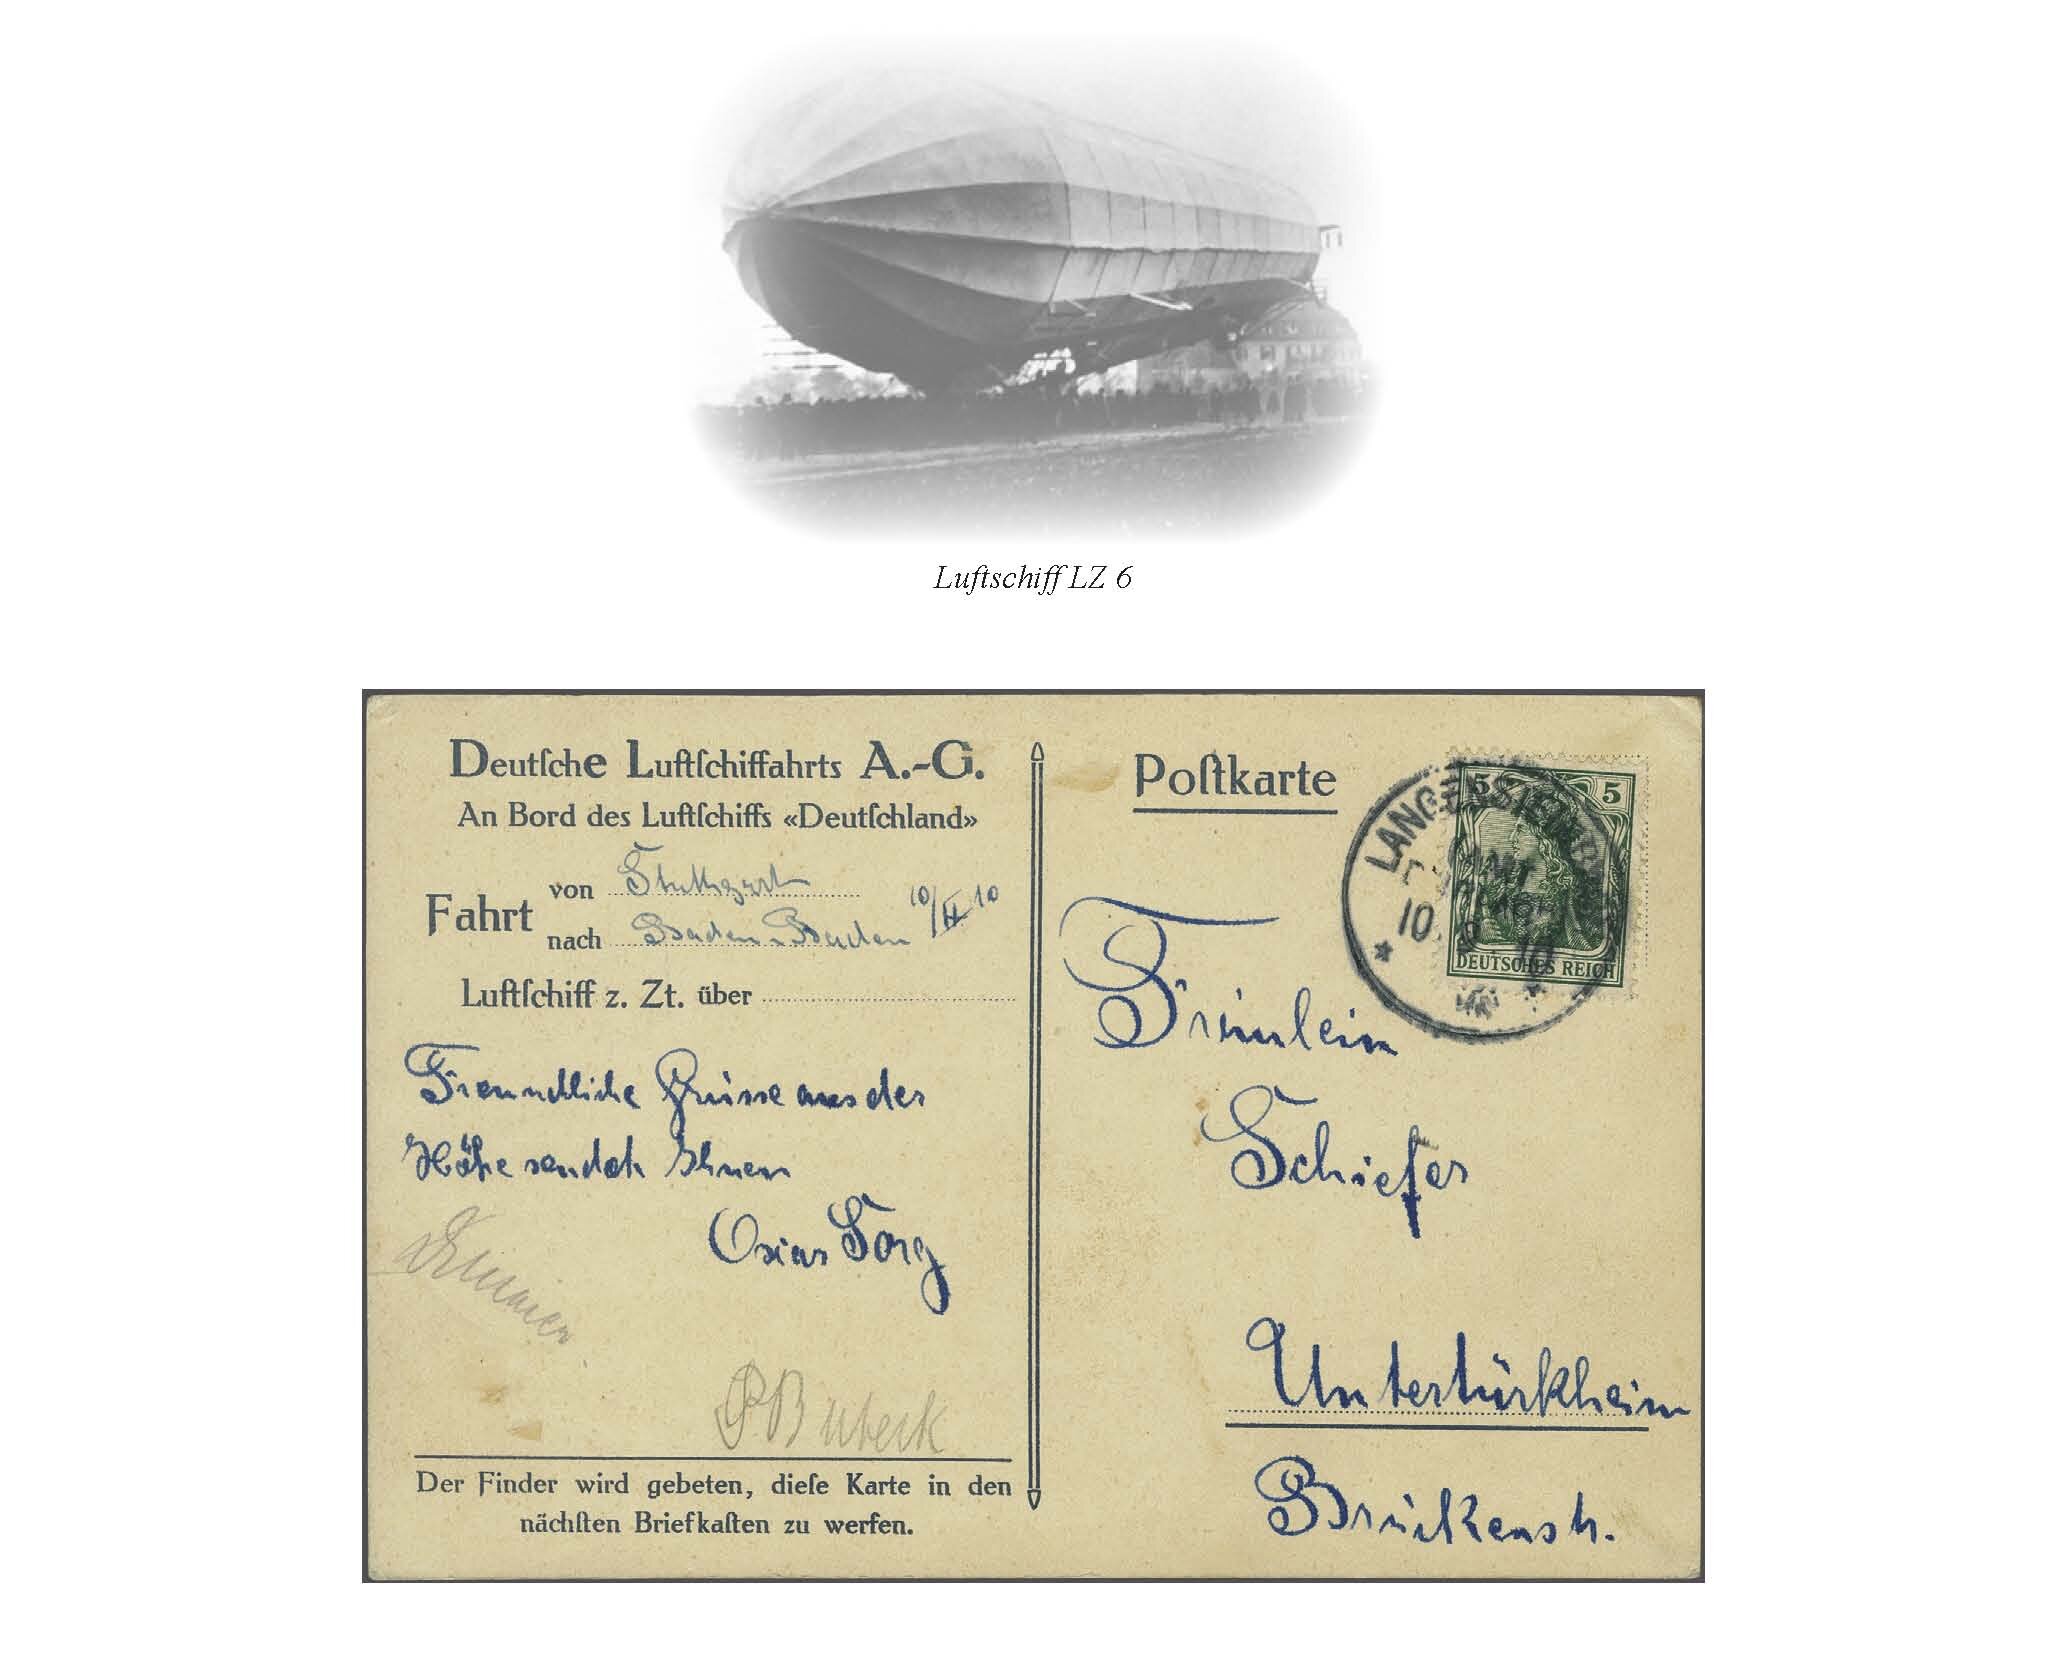 Luftschiff LZ 6
Deutſche Luftſchiffahrts A.-G.
An Bord des Luftſchiffs «Deutſchland»
Fahrt von Stuttgart
nach Baden-Baden 10/IX 10
Luftſchiff z. Zt. über
Freundliche Grüsse aus der
Höhe sendet Ihnen
Oskar Sorg
P Bubeck
Der Finder wird gebeten, dieſe Karte in den
nächſten Briefkaſten zu werfen.
Poſtkarte
5 5
DEUTSCHES REICH
LANGENSTEINBACH
10. 9. 10
Fräulein
Schiefer
Untertürkheim
Brückenstr.